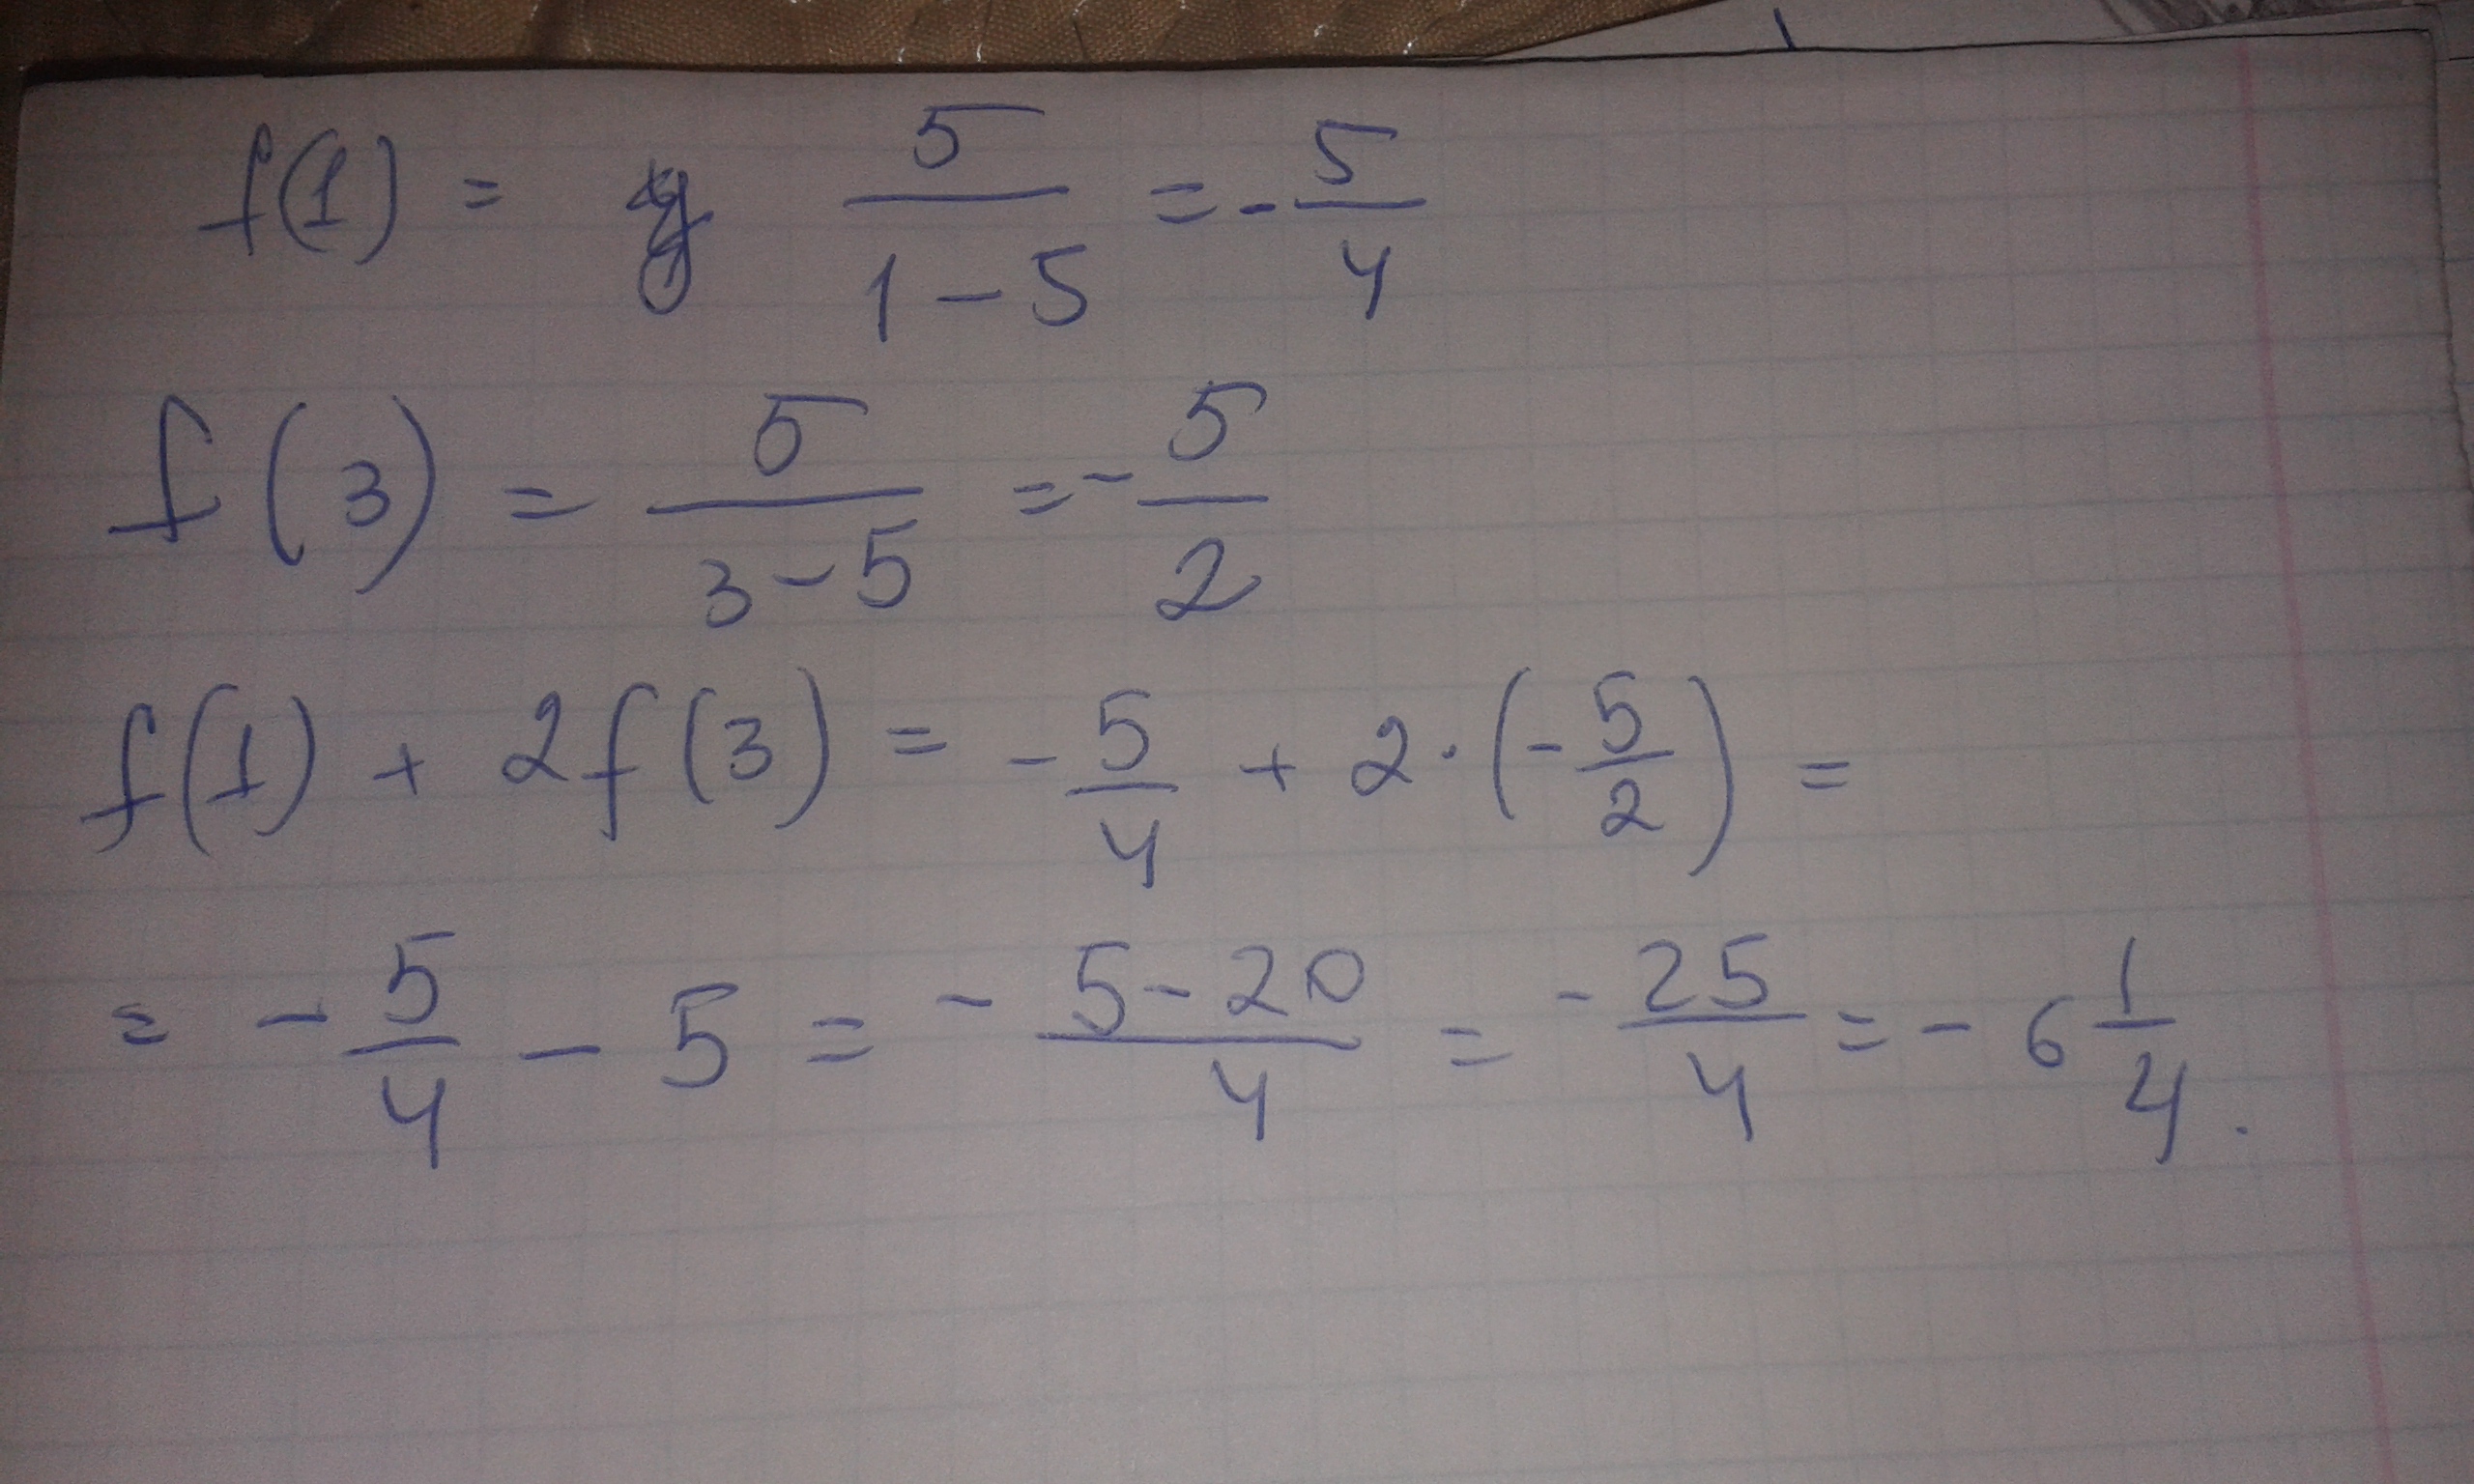 f(1) = 5/(1-5) = -5/4
f(3) = 5/(3-5) = -5/2
f(1) + 2f(3) = -5/4 + 2·(-5/2) =
= -5/4 - 5 = - 5-20/4 = -25/4 = -6 1/4.